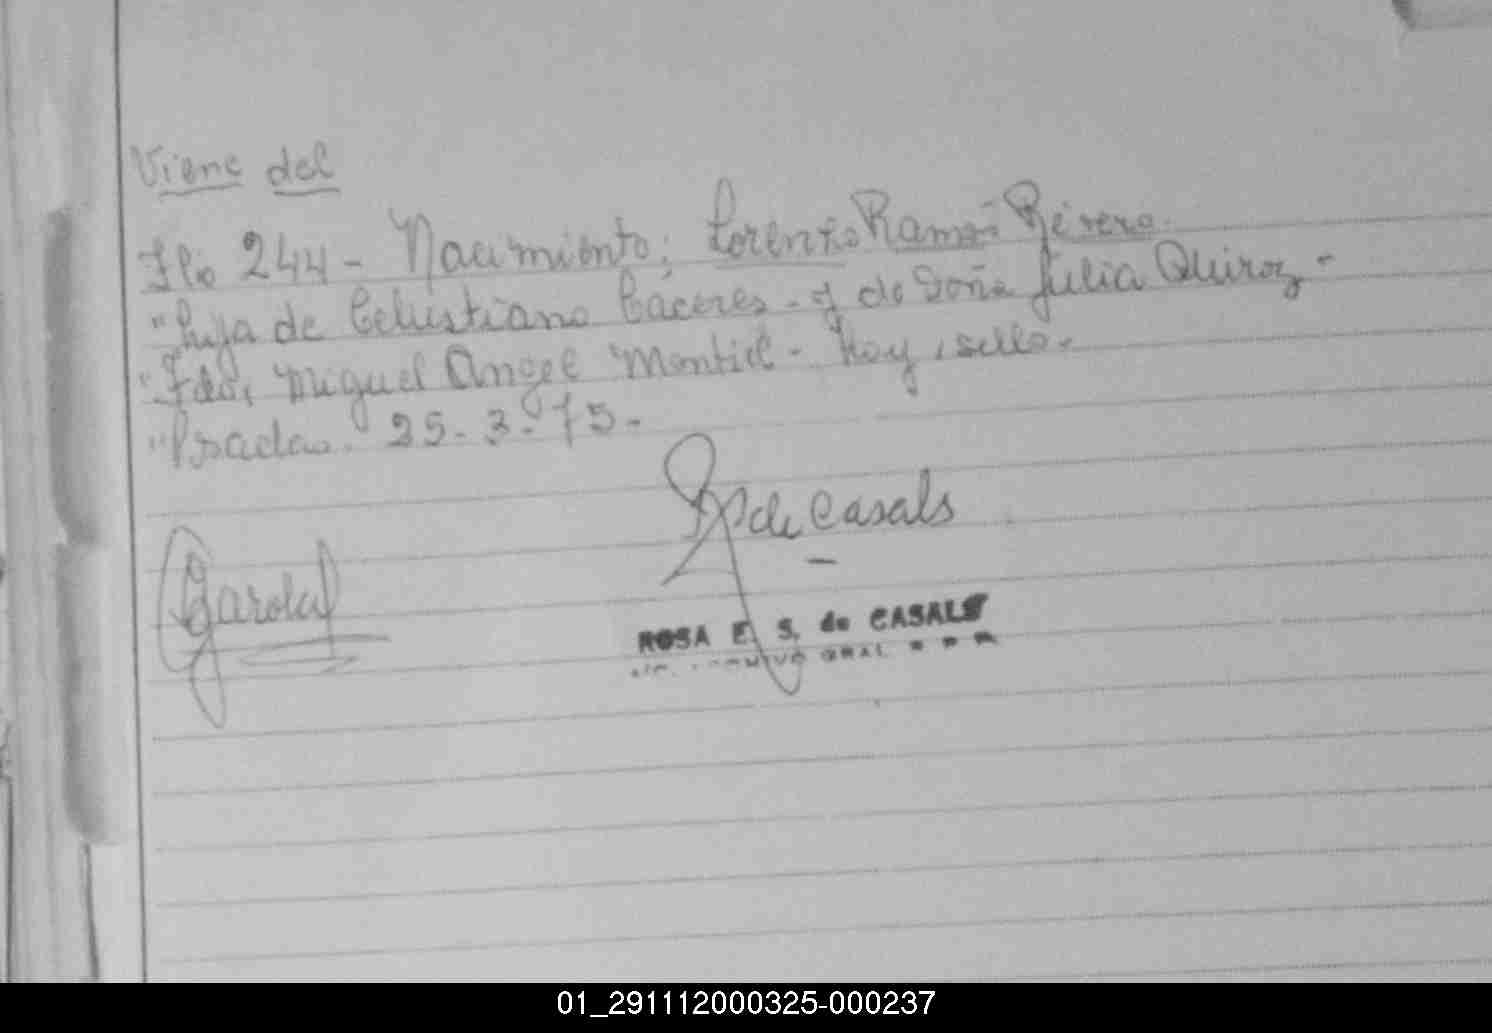 Viene del
Flio 244 - Nacimiento: Lorenzo Ramón
"hija de Celustiano Cáceres - y de Doña Julia Quiroz -
"Fdo, Miguel Angel Montiel - Hay, sello.
"Psadas. 25-3-75.
de Casals
ROSA E. S. de CASALS
GRAL
01_291112000325-000237